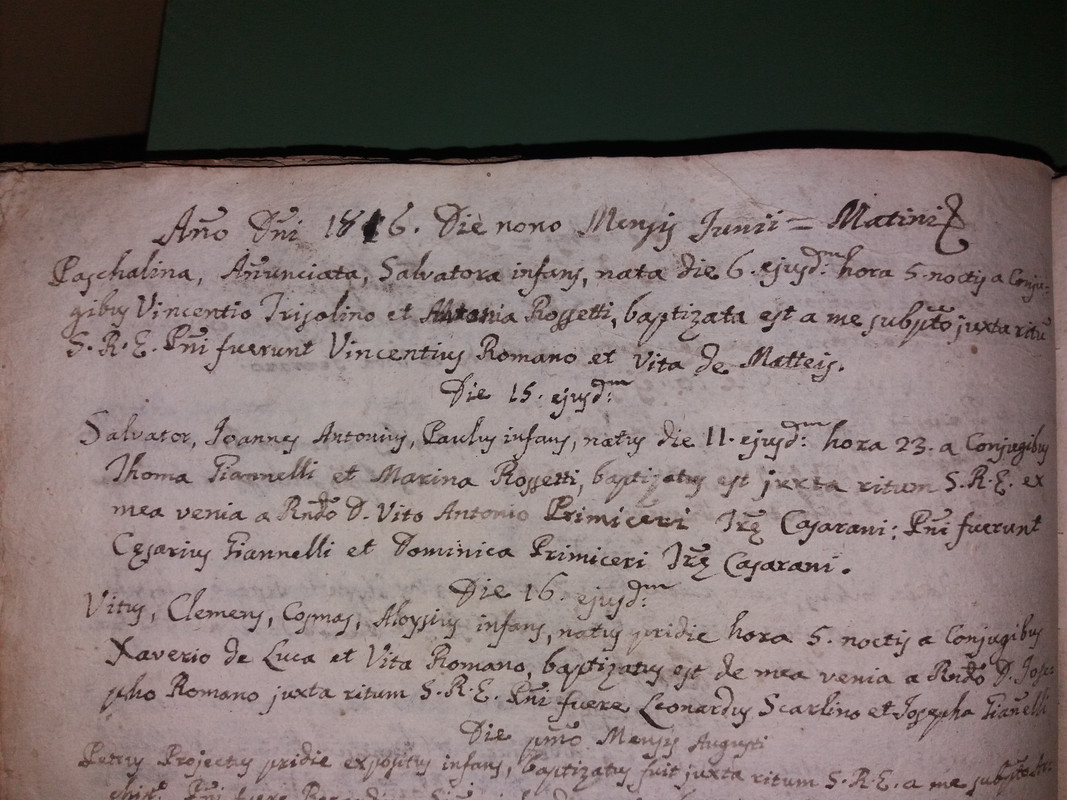 Año Dñi 1816. Die nono Mensis Junii = Matini
Paschalina, Añunciata, Salvatora infans, nata die 6. ejusd:m hora 5. noctis a Conju-
gibus Vincentio Trisolino et Antonia Rossetti, baptizata est a me subpto juxta ritũ
S. R. E. Pñi fuerunt Vincentius Romano et Vita de Matteis.
Die 15. ejusd:m
Salvator, Joannes Antonius, Paulus infans, natus die 11. ejusd:m hora 23. a Conjugibus
Thoma Giannelli et Marina Rossetti, baptizatus est juxta ritum S. R. E. ex
mea venia a Rndo D. Vito Antonio Primiceri Træ Casarani: Pñi fuerunt
Cęsarius Giannelli et Dominica Primiceri Træ Casarani.
Die 16. ejusd:m
Vitus, Clemens, Cosmas, Aloysius infans, natus pridie hora 5. noctis a Conjugibus
Xaverio de Luca et Vita Romano, baptizatus est de mea venia a Rndo D. Jose-
pho Romano juxta ritum S. R. E. Pñi fuere Leonardus Scarlino et Josepha Giañelli
Die pmo Mensis Augusti
Petrus Projectus pridie expositus infans, baptizatus fuit juxta ritum S. R. E. a me subpto
Pñi fuere